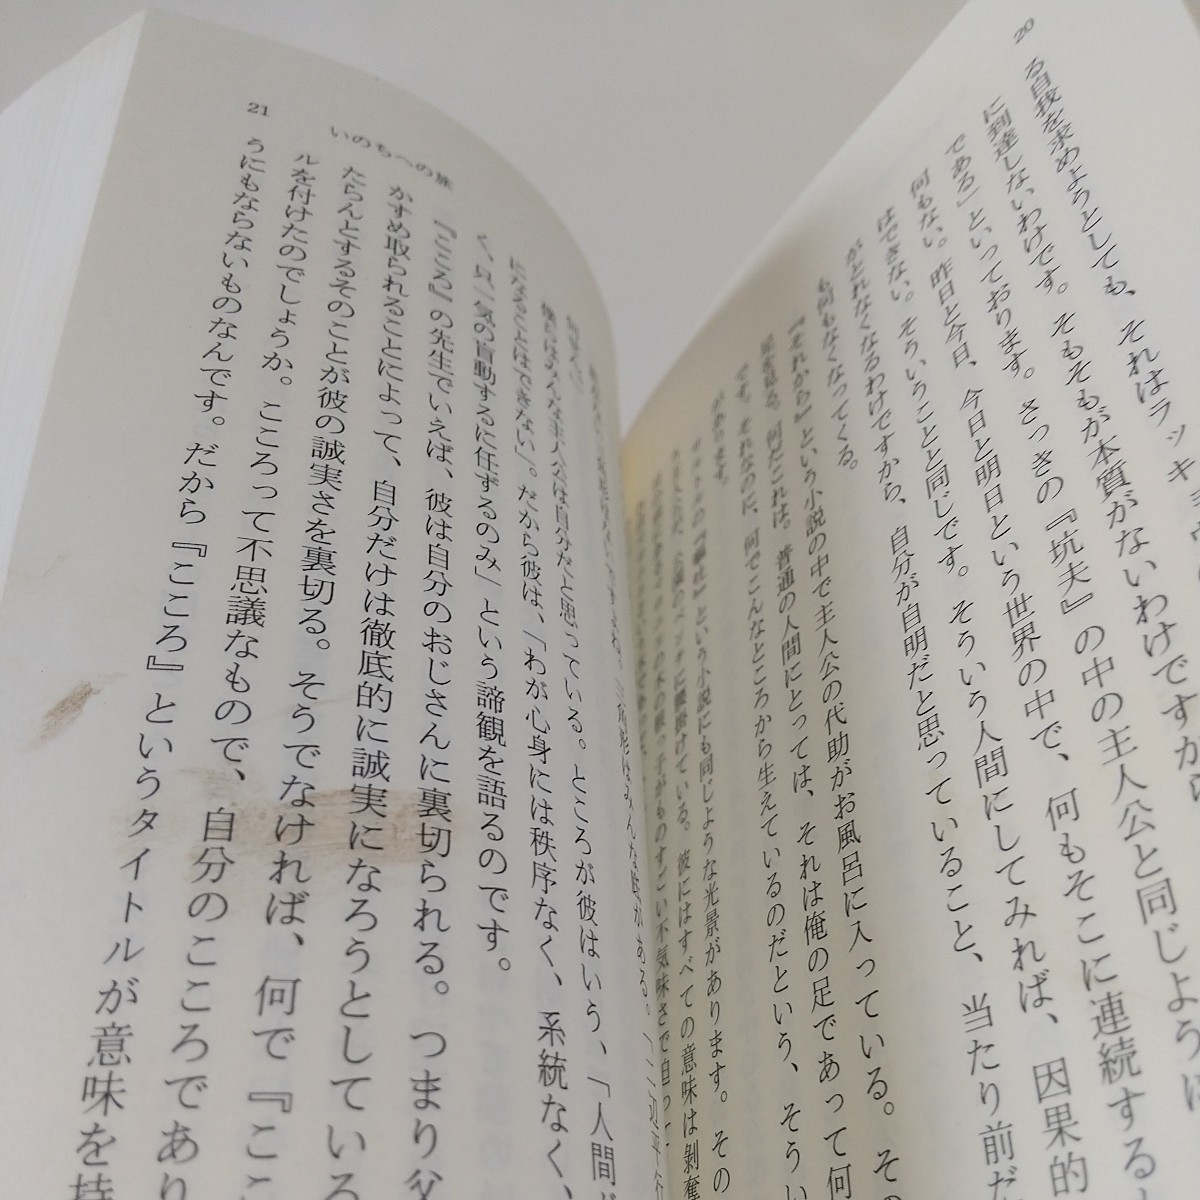 20
る自我を求めようとしても、それはラッキョウの
に到達しないわけです。そもそもが本質がないわけですから
である」といっております。さっきの『坑夫』の中の主人公と同じように
何もない。昨日と今日、今日と明日という世界の中で、何もそこに連続する
はできない。そういうことと同じです。そういう人間にしてみれば、因果的
がとれなくなるわけですから、自分が自明だと思っていること、当たり前だ
も何もなくなってくる。
『それから』という小説の中で主人公の代助がお風呂に入っている。そ
足を見る。何だこれは。普通の人間にとっては、それは俺の足であって何
です。それなのに、何でこんなところから生えているのだという、そうい
がります。
という小説にも同じような光景があります。その
に腰掛けている。彼にはすべての意味は剝奪
の木の根っ子がものすごい不気味さで迫って
三角形はみんな底がある。
僕らはみんな主人公は自分だと思っている。ところが彼はいう、「人間が
になることはできない」。だから彼は、「わが心身には秩序なく、系統なく、
く、只一気の盲動するに任ずるのみ」という諦観を語るのです。
『こころ』の先生でいえば、彼は自分のおじさんに裏切られる。つまり父
かすめ取られることによって、自分だけは徹底的に誠実になろうとしている
たらんとするそのことが彼の誠実さを裏切る。そうでなければ、何で『ここ
ルを付けたのでしょうか。こころって不思議なもので、自分のこころであり
うにもならないものなんです。だから『こころ』というタイトルが意味を持
いのちへの旅
21